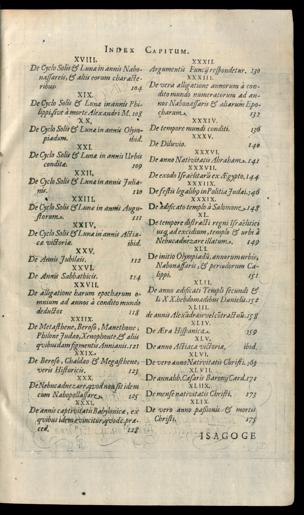 INDEX CAPITUM.
XVIII.
De Cyclo Solis & Lunæ in annis Nabo-
nassareis, & aliis eorum characte-
ribus 104
XIX.
De Cyclo Solis & Lunæ in annis Phi-
lippi, sive à morte Alexandri M. 108
XX.
De Cyclo Solis & Lunæ in annis Olym-
piadum. ibid.
XXI.
De Cyclo Solis & Lunæ in annis Urbis
conditæ. 109
XXII.
De Cyclo Solis & Lunæ in annis Julia-
nis. 110
XXIII.
De Cyclo Solis & Lunæ in annis Augu-
storum. 111
XXIV.
De Cyclo Solis & Lunæ in annis Actia-
ca victoria. ibid.
XXV.
De Annis Jubilæis. 112
XXVI.
De Annis Sabbathicis. 114
XXVII.
De allegatione harum epocharum o-
mnium ad annos à condito mundo
deductos 118
XXIIX.
De Metasthene, Beroso, Manethone,
Philone Judæo, Xenophonte, & aliis
quibusdam figmentis Annianis. 121
XXIX.
De Beroso, Chaldæo & Megasthene,
veris Historicis. 123
XXX.
De Nebucadnezare, quod non sit idem
cum Nabopollassare. 125
XXXI.
De annis captivitatis Babylonicæ, ex
quibus idem evincitur, quod præ-
ced. 128
XXXII.
Argumentis Funcij respondetur. 130
XXXIII.
De vera alligatione annorum à con-
dito mundo numeratorum ad an-
nos Nabonassaris & aliarum Epo-
charum. 132
XXXIV.
De tempore mundi conditi. 136
XXXV.
De Diluvio. 140
XXXVI.
De anno Nativitatis Abraham. 141
XXXVII.
De exodo Israëlitarum ex Ægypto. 144
XXXVIIX.
De festis legalibus in Politia Judai. 146
XXXIX.
De ædificato templo à Salomone. 148
XL.
De tempore distracti regni Israëlitici
usq; ad excidium, templi & urbis à
Nebucadnezare illatum. 149
XLI.
De initio Olympiadū, annorum urbis,
Nabonassaris, & periodorum Ca-
lippi. 151
XLII.
De anno ædificati Templi secundi &
LXX. hebdomadibus Danielis. 152
XLIII.
de annis Alexandri vel côtractuū. 158
XLIV.
De Æra Hispanica. 159
XLV.
De anno Actiacæ victoriæ, ibid.
XLVI.
De vero anno Nativitatis Christi. 163
XLVII.
De anna bb. Cæsaris Baronij Card. 171
XLIIX.
De mense nativitatis Christi. 173
XLIX.
De vero anno passionis & mortis
Christi. 175
ISAGOGE